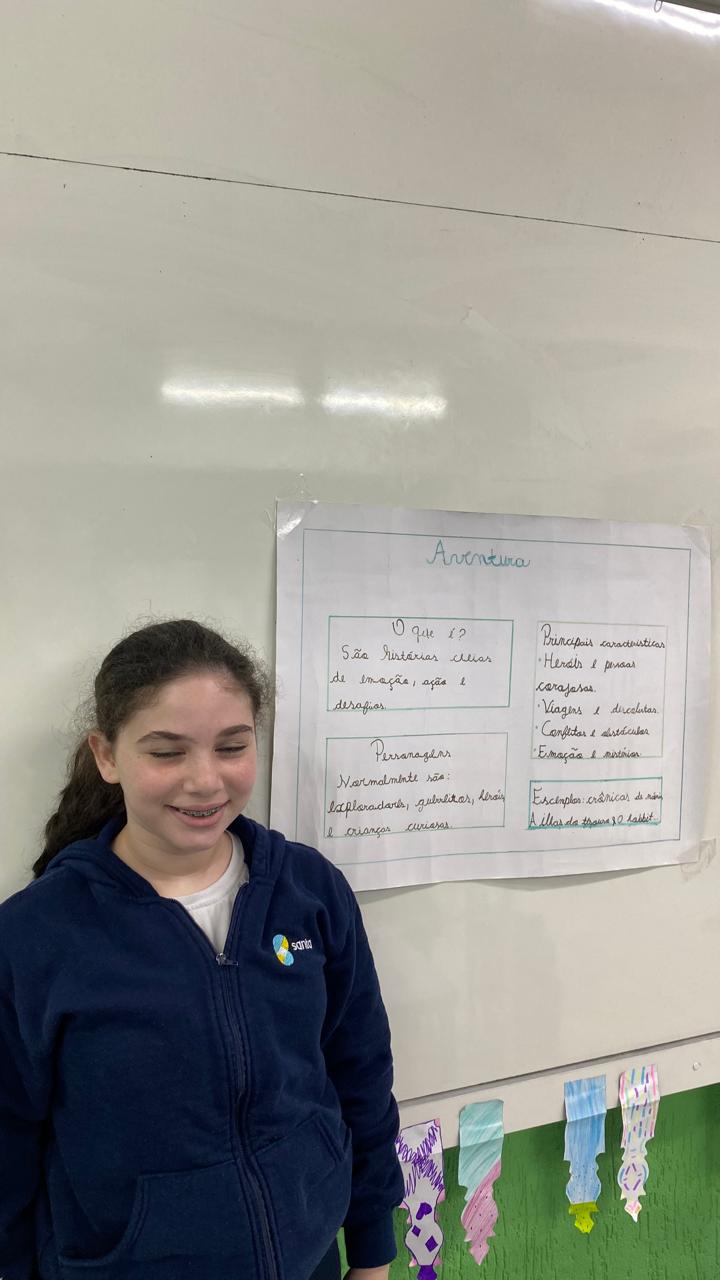 Aventura
O que é?
São histórias cheias
de emoção, ação e
desafios.
Principais características
• Heróis e pessoas
corajosas.
• Viagens e descobertas
• Conflitos e obstáculos
• Emoção e mistérios
Personagens
Normalmente são:
exploradores, guerreiros, heróis
e crianças curiosas.
Exemplos: crônicas de nárnia,
A ilha do tesouro, O hobbit.
santa